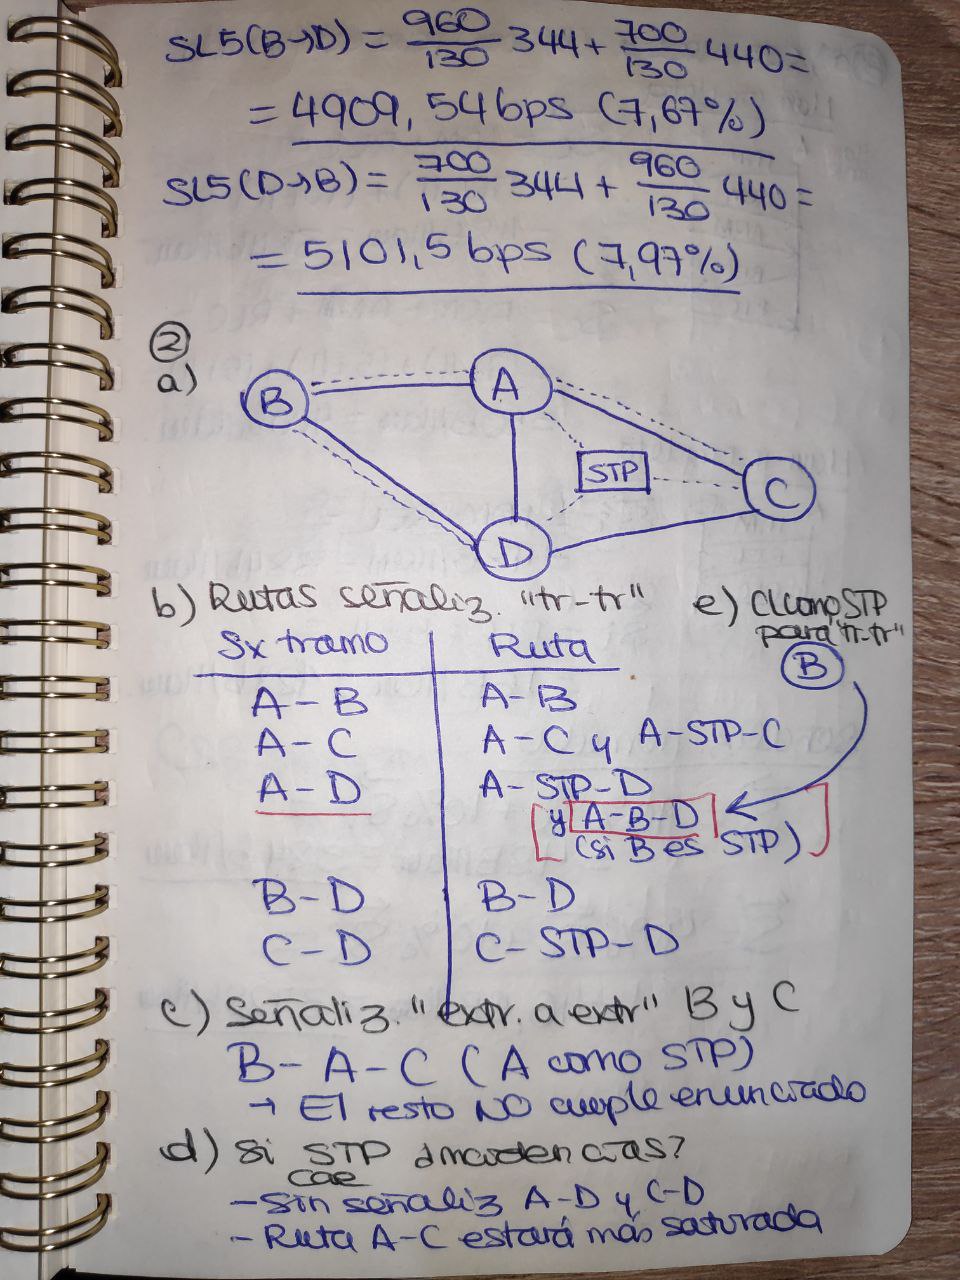 SL5(B→D) = 960/130 344 + 700/130 440 =
= 4909,54 bps (7,67%)
SL5(D→B) = 700/130 344 + 960/130 440 =
= 5101,5 bps (7,97%)
②
a)
B A
STP
C
D
b) Rutas señaliz. "tr-tr" e) ¿Cómo STP
para "tr-tr"
B
Sx tramo Ruta
A - B A-B
A - C A-C y A-STP-C
A - D A-STP-D
y A-B-D
(si B es STP)
B-D B-D
C-D C-STP-D
c) Señaliz. "extr. a extr" B y C
B-A-C (A como STP)
→ El resto NO cumple enunciado
d) Si STP cae
- Sin señaliz A-D y C-D
- Ruta A-C estará más saturada